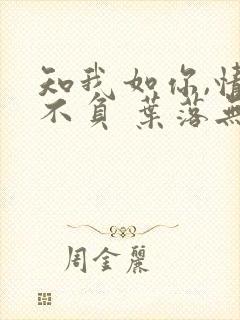 知我如你,情
不負 葉落無
周金麗